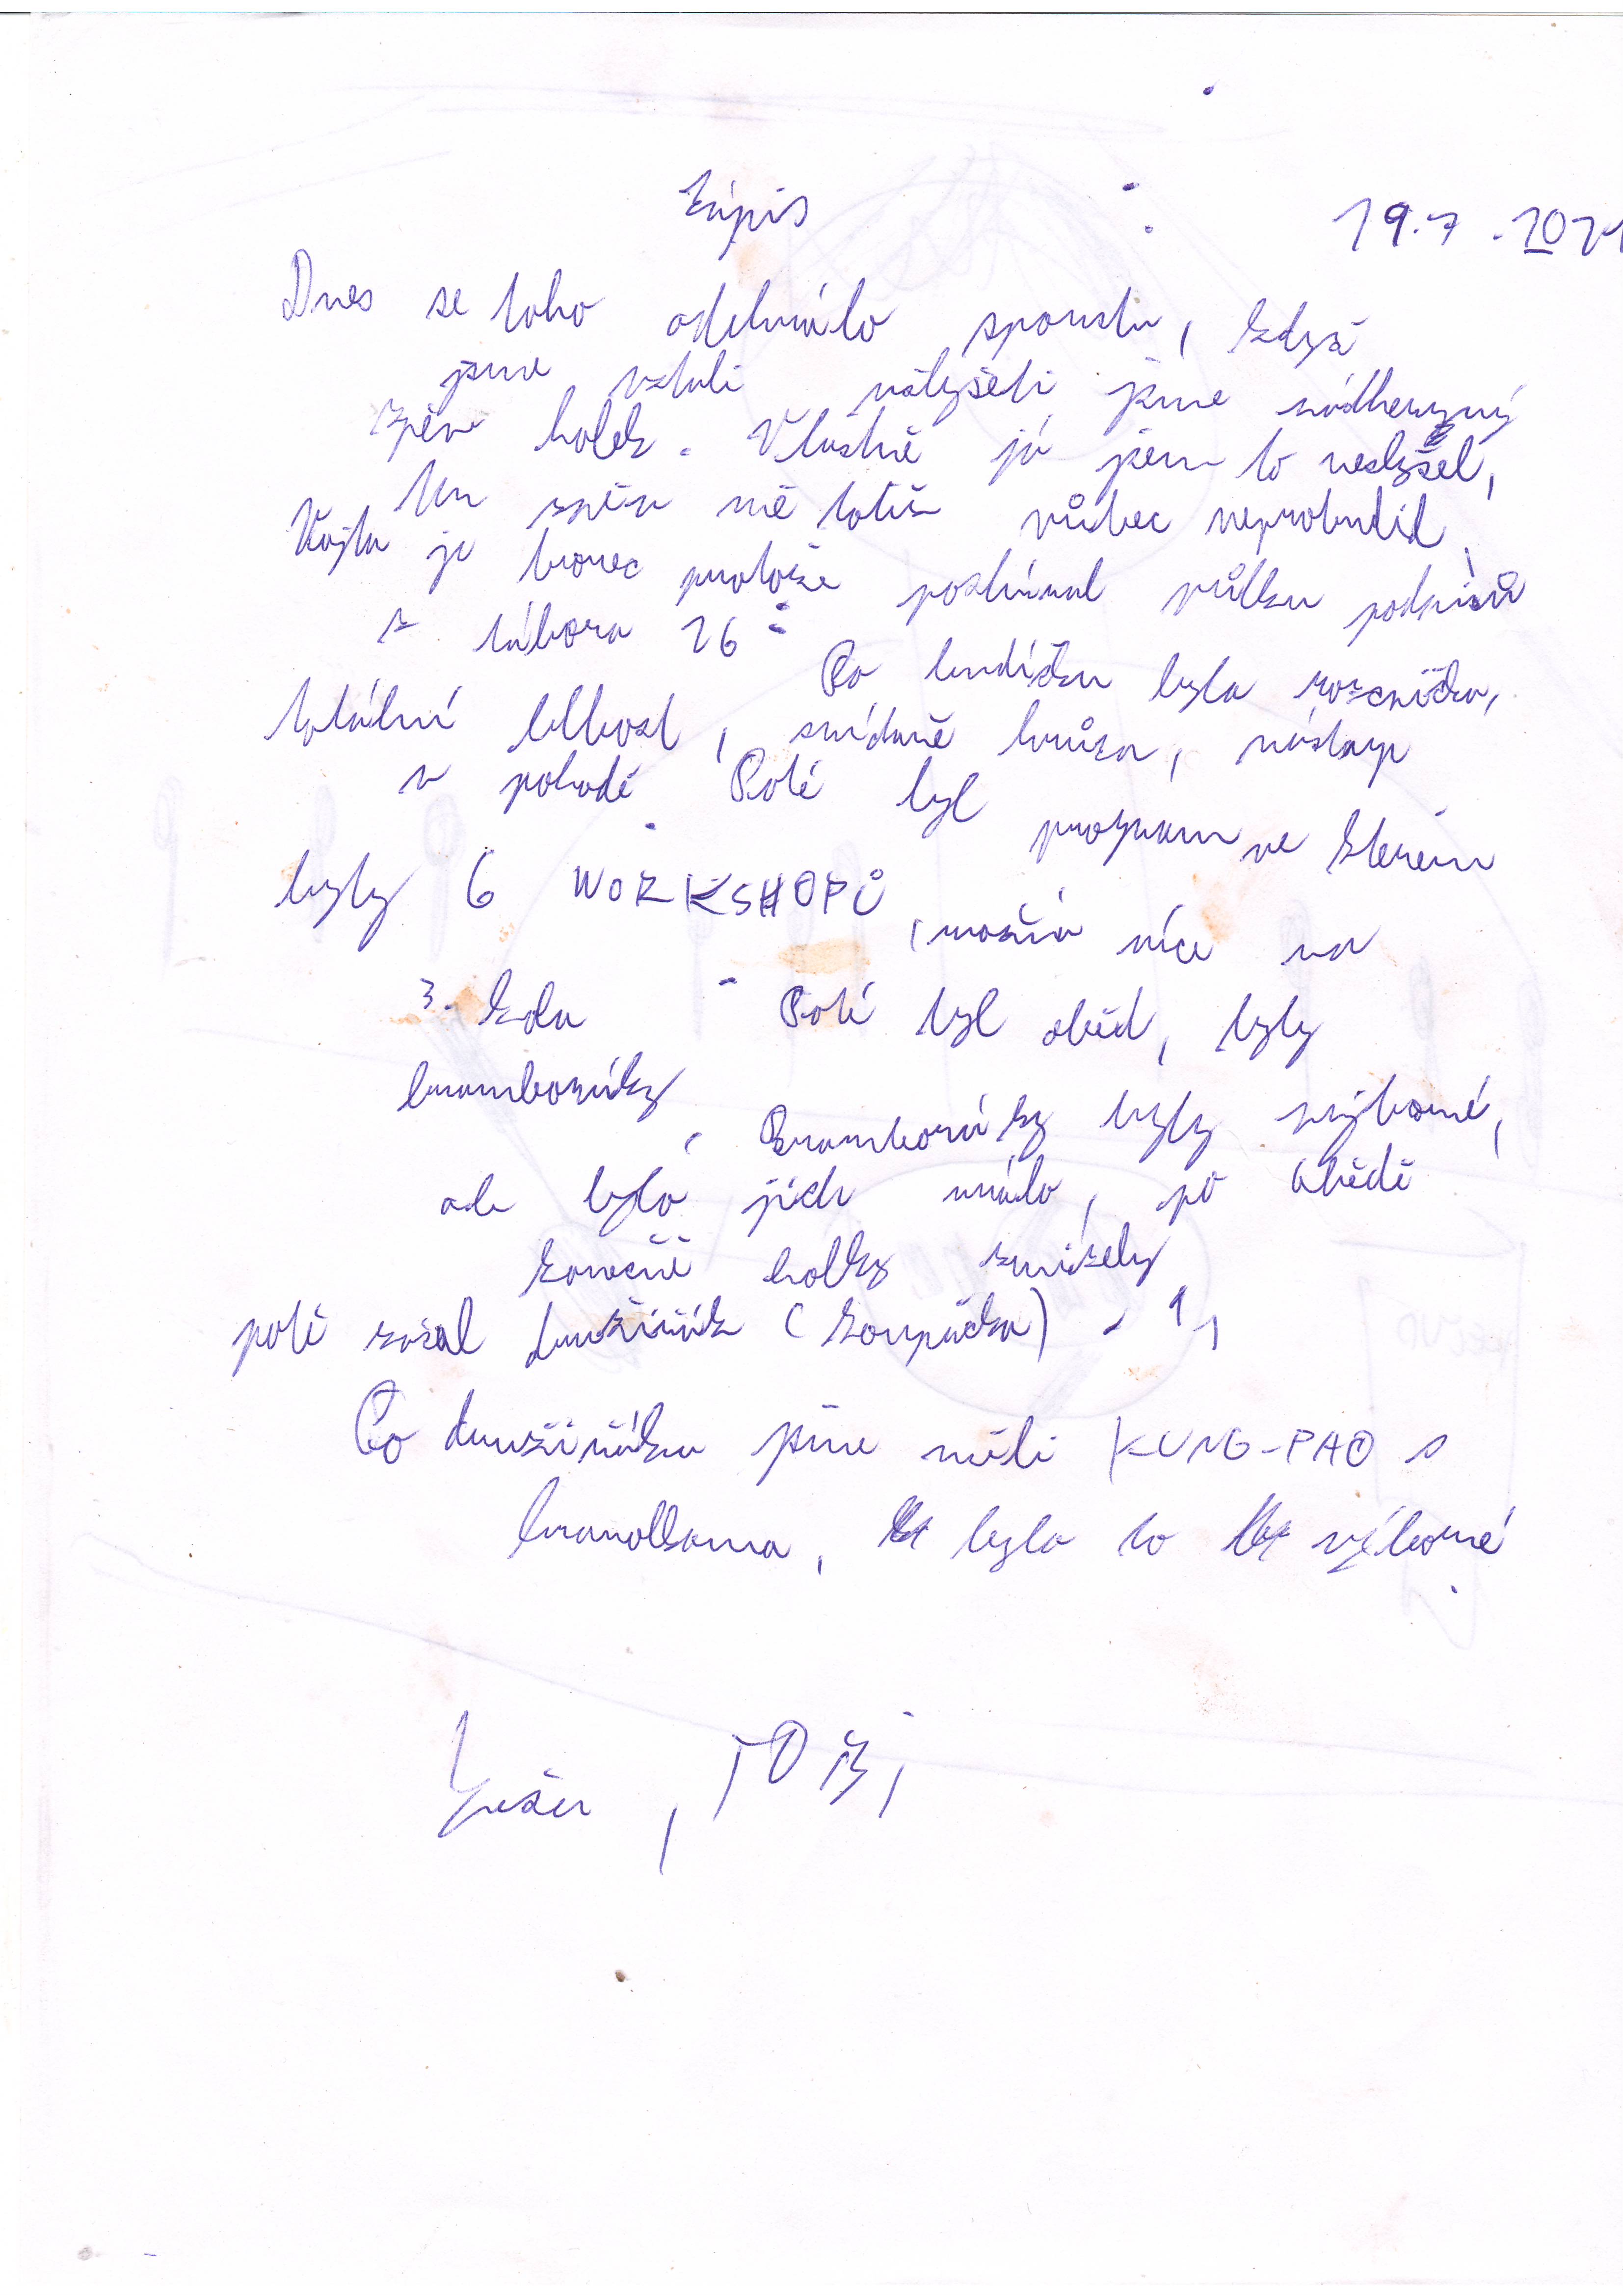 Zápis
19.7.2021
Dnes se toho odehrálo spoustu, když
jsme vstali uslyšeli jsme nádherný
zpěv holek. Vlastně já jsem to neslyšel,
ten zpěv mě totiž vůbec neprobudil,
Vojta je borec protože posbíral půlku podpisů
z tábora 26. Po budíčku byla rozcvička,
totální blbost, snídaně hrůza, nástup
v pohodě. Poté byl program ve kterém
byly 6 WORKSHOPŮ, možná více na
3. kola. Poté byl oběd, byly
bramboráky. Bramboráky byly výborné,
ale bylo jich málo, po obědě
konečně holky zmizely,
poté začal družiňák (koupačka).
Po družiňáku jsme měli KUNG-PAO s
hranolkama, bylo to výborné.